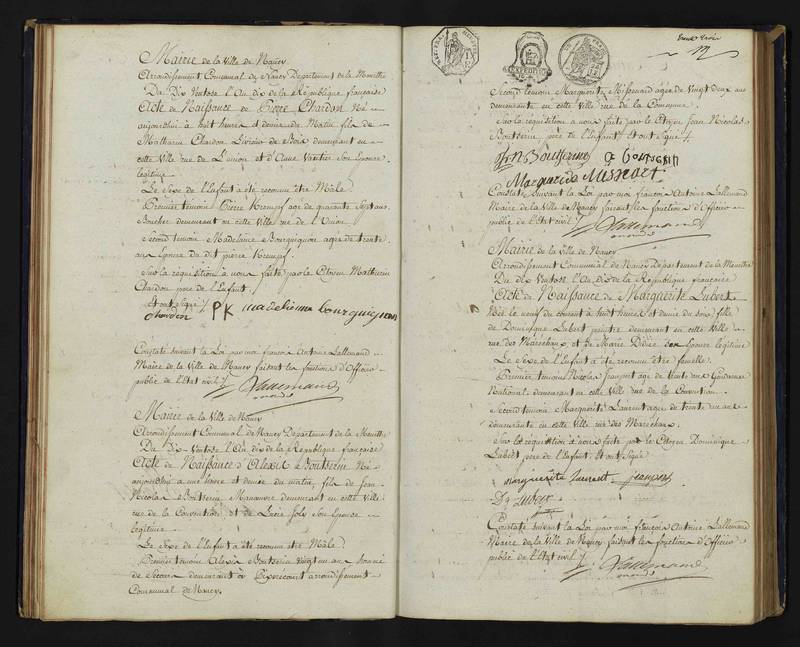 Mairie de la Ville de Nancy
Arrondissement Communal de Nancy Departement de la Meurthe
Du Dix Ventose l'An dix de la République française
Acte de Naissance de Pierre Chardon Né
aujourdhui à huit heures et demie du Matin fils de
Mathurin Chardon demeurant en
cette Ville rue de l'Union et d'Anne son Epouse
legitime
Le Sexe de l'Enfant a été reconnu être Mâle
Premier temoin Pierre Krempf age de quarante Sept ans
Boucher demeurant en cette Ville rue de l'Union
Second temoin Madelaine Bourguignon agée de trente
ans Epouse du dit pierre Krempf
Sur la requisition à nous faite par le Citoyen Mathurin
Chardon pere de l'Enfant
Et ont Signé /
chardon PK madeleinne bourguignon
Constaté Suivant la Loi par moi francois Antoine Lallemand
Maire de la Ville de Nancy faisant les fonctions d'Officier
public de l'Etat civil /
Lallemand
Mairie de la Ville de Nancy
Arrondissement Communal de Nancy Departement de la Meurthe
Du Dix Ventose l'An dix de la République française
Acte de Naissance d'Alexis Boutserin Né
aujourdhui à une heure et demie du matin, fils de Jean
Nicolas Boutserin Manœuvre demeurant en cette Ville
rue de la Convention, et de Lucie Joly Son Epouse
legitime
Le Sexe de l'Enfant a été reconnu etre Mâle
Premier temoin Alexis Boutserin vingt un ans
demeurant à Pixerecourt arrondissement
Communal de Nancy
Second temoin Marguerite Missenard agée de vingt deux ans
demeurante en cette Ville rue de la Commune
Sur la requisition à nous faite par le Citoyen Jean Nicolas
Boutserin pere de l'Enfant Et ont Signé /
Marguerite
Constaté Suivant la Loi par moi françois Antoine Lallemand
Maire de la Ville de Nancy faisant les fonctions d'Officier
public de l'Etat civil /
Lallemand
Mairie de la Ville de Nancy
Arrondissement Communal de Nancy Département de la Meurthe
Du Dix Ventose l'An dix de la République française
Acte de Naissance de Marguerite Lubert
Née le neuf du courant à huit heures et demie du soir fille
de Dominique Lubert peintre demeurant en cette Ville
rue des Maréchaux et de Marie Didier son Epouse legitime
Le Sexe de l'Enfant a été reconnu être femelle
Premier temoin Nicolas Jeanpert agé de trente deux Gendarme
National demeurant en cette Ville rue de la Convention
Second temoin Marguerite Laurent agée de trente un ans
demeurante en cette Ville rue des Marechaux
Sur la requisition à nous faite par le Citoyen Dominique
Lubert pere de l'Enfant Et ont Signé
marguerite laurent jeanpert
D. Lubert
Constaté Suivant la Loi par moi françois Antoine Lallemand
Maire de la Ville de Nancy faisant les fonctions d'Officier
public de l'Etat civil /
Lallemand